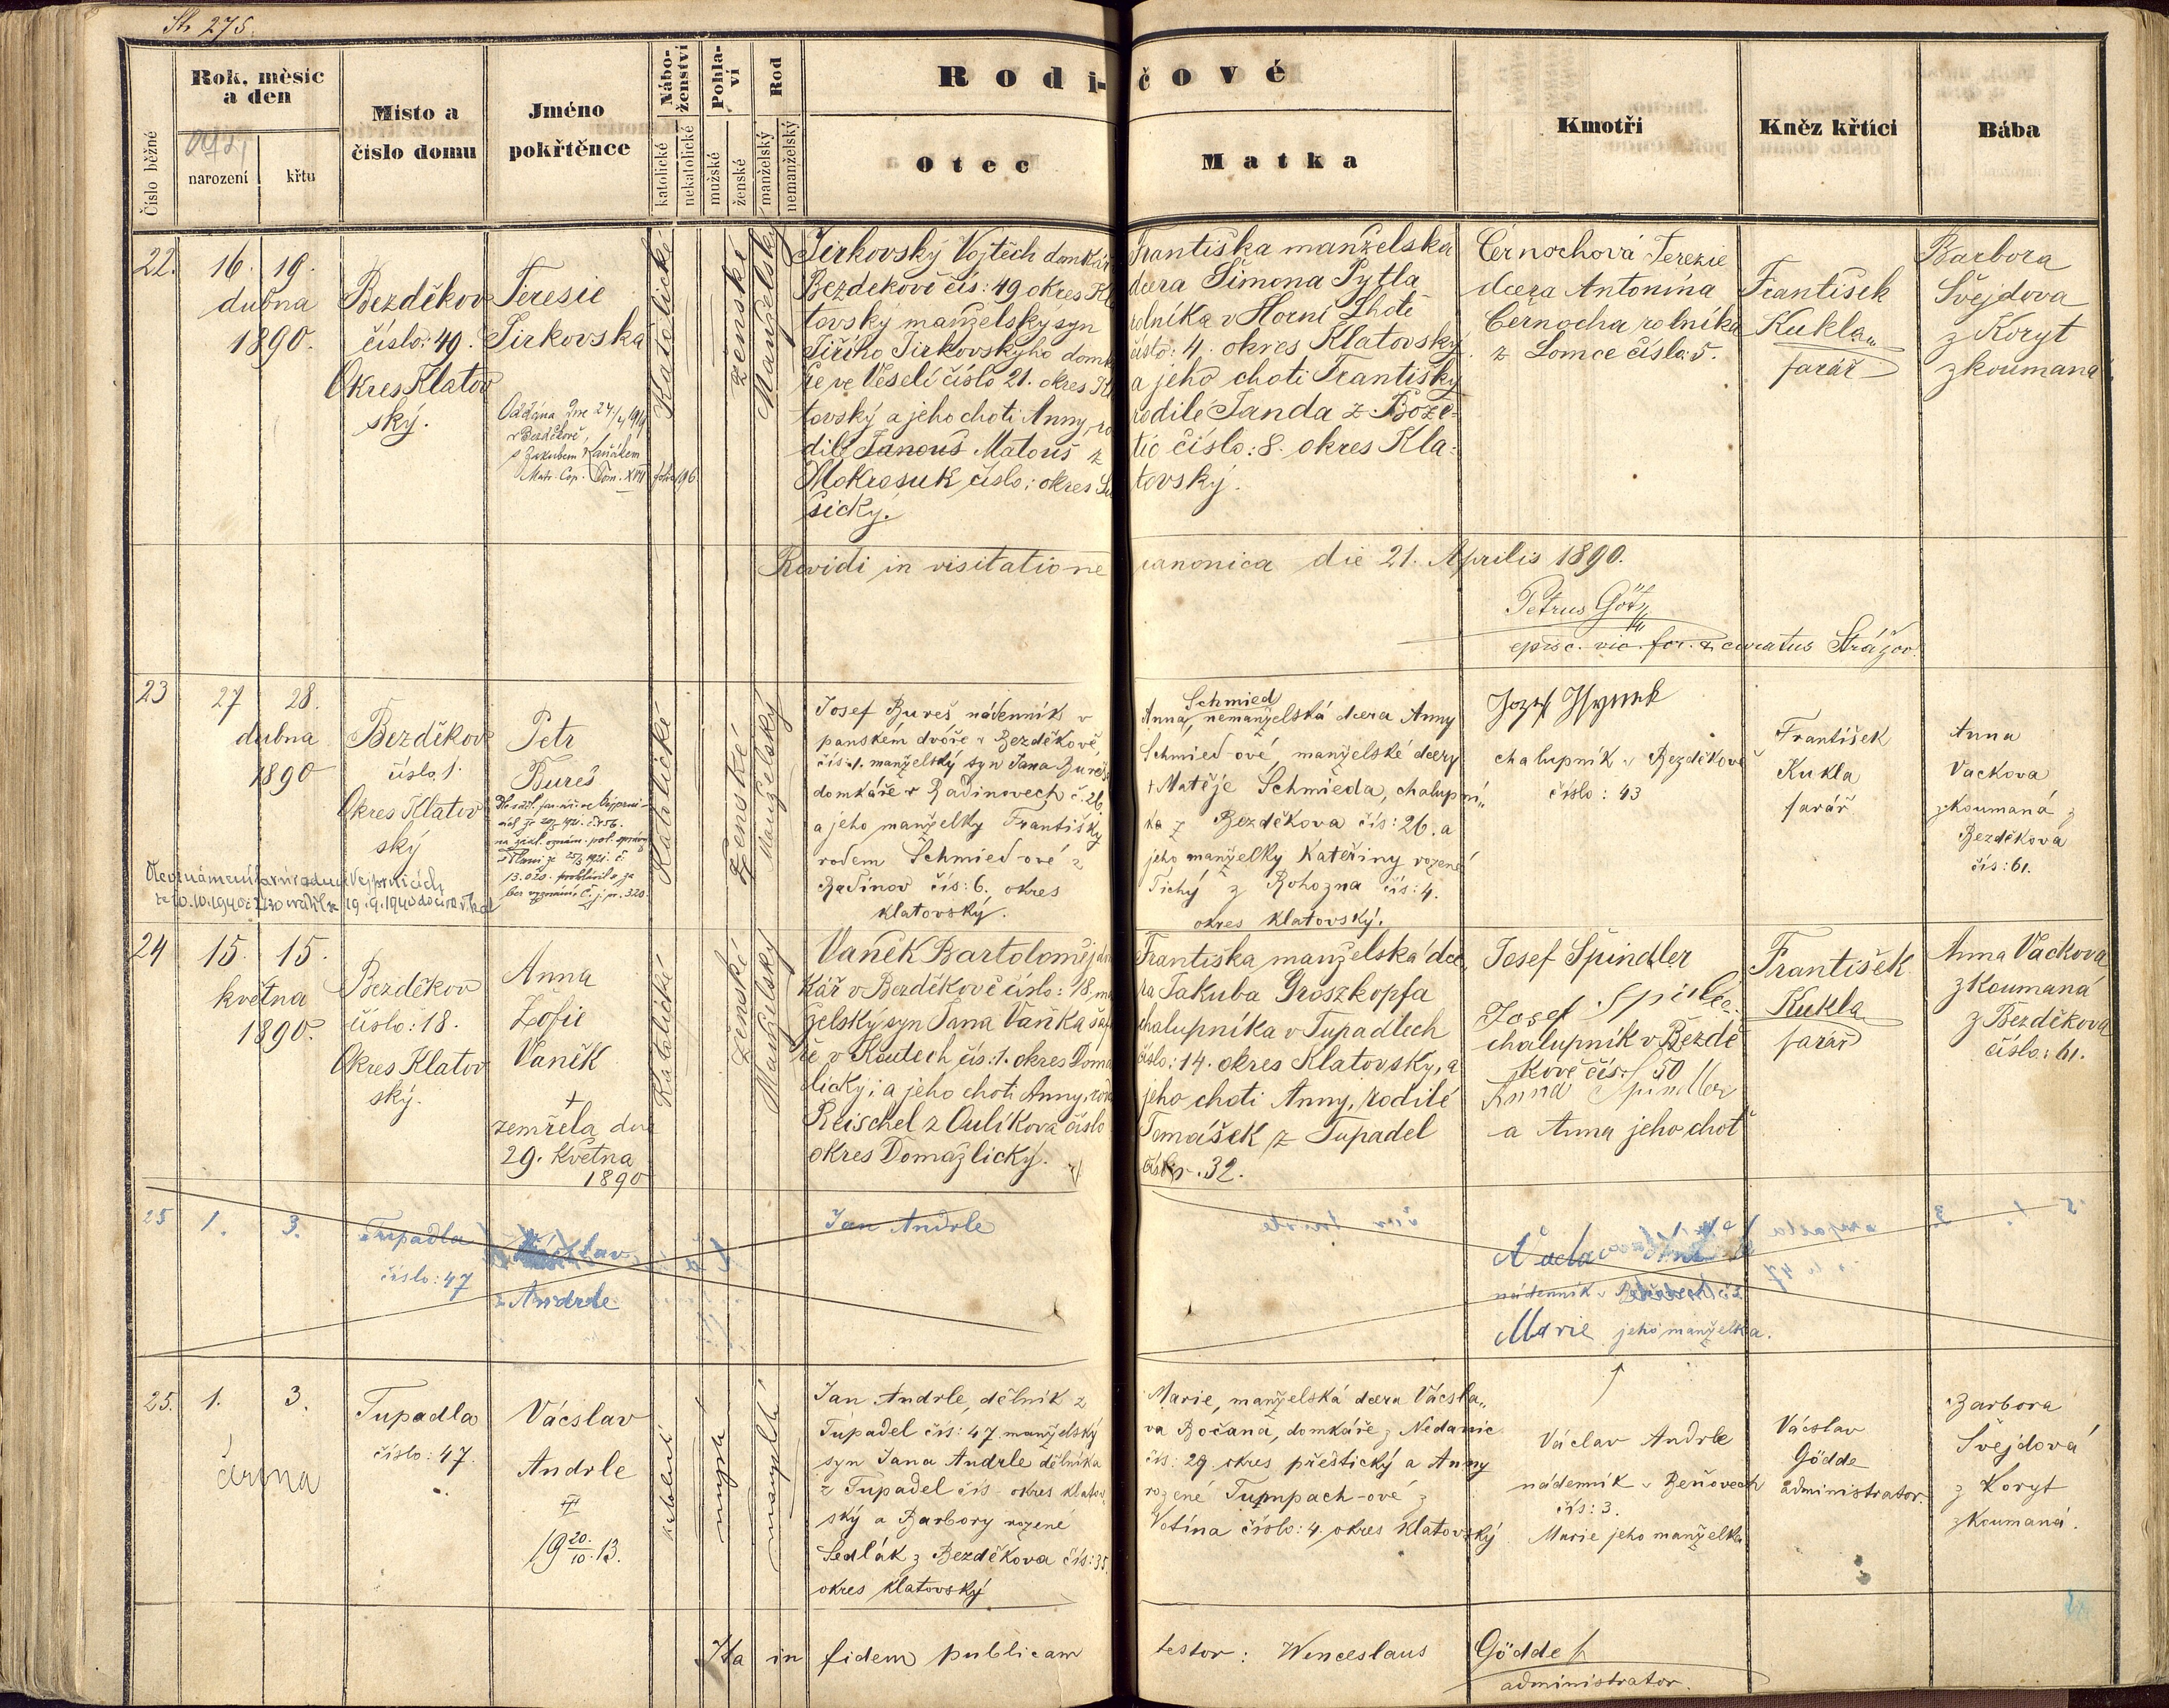 Str 275.
Číslo běžné
Rok, měsíc
a den
narození
křtu
Místo a
číslo domu
Jméno
pokřtěnce
Nábo-
ženství
katolické
nekatolické
Pohla-
ví
mužské
ženské
Rod
manželský
nemanželský
Rodi-
čové
Otec
Matka
Kmotři
Kněz křtící
Bába
22.
16. 19.
dubna
1890.
Bezděkov
číslo: 49.
Okres Klatov
ský.
Teresie
Jirkovska
Oddána dne 24/4 1919
v Bezděkově,
s Jakubem
Matr. Cop. Tom. XVII folio 196.
Katolické
ženské
Manželský
Jirkovský Vojtěch domkář
Bezdekově čís: 49 okres Kla
tovský manželský syn
Jiřího Jirkovskýho domk
ře ve Veselí číslo 21. okres Kl
tovský a jeho choti Anny, ro
dilé Janouš Matouš z
Mokrosuk číslo: okres Su
šický.
Františka manželská
dcera Šimona Pytla
rolníka v Horní Lhotě
číslo: 4. okres Klatovský
a jeho choti Františky
rodilé Janda z Bože-
tic číslo: 8. okres Kla-
tovský.
Černochová Terezie
dcera Antonína
Černocha rolníka
z Lomce číslo: 5.
František
Kukla
farář
Barbora
Švejdova
z Koryt
zkoumana
Revidi in visitatione canonica die 21. Aprilis 1890.
Petrus Götz
episc. vic. for. & curatus Strážov.
23
27 28.
dubna
1890
Bezděkov
číslo 1.
Okres Klatov
ský
Petr
Bureš
13.020. prohlásil se
bez vyznání, č. j. m. 320.
Katolické
Ženské
Manželský
Josef Bureš, nádenník v
panském dvoře v Bezděkově,
čís: 1. manželský syn Jana Bureše
domkáře v Radinovech č. 26
a jeho manželky Františky
rodem Schmied-ové z
Radinov čís: 6. okres
klatovský.
Schmied
Anna, nemanželská dcera Anny
Schmied-ové, manželské dcery
† Matěje Schmieda, chalupní„
ka z Bezděkova čís: 26. a
jeho manželky Kateřiny rozené
Tichý z Rohozna čís: 4.
okres klatovský.
Jozef Hynek
chalupník v Bezděkově
číslo: 43
František
Kukla
farář
Anna
Vackova
zkoumaná z
Bezděkova
čís: 61.
24
15. 15.
května
1890.
Bezděkov
číslo: 18.
Okres Klatov
ský.
Anna
Žofie
Vaněk
†
zemřela dne
29. května
1890
Katolické
ženské
Manželský
Vaněk Bartoloměj dom
kář v Bezděkově číslo: 18, ma
želský syn Jana Vaňka šafá
ře v Koutech čís: 1. okres Doma
žlický; a jeho choti Anny, rod
Reischel z Oulíkova číslo
okres Domažlický.
Františka manželská dce
ra Jakuba Groszkopfa
chalupníka v Tupadlech
číslo: 14. okres Klatovský, a
jeho choti Anny, rodilé
Tomášek z Tupadel
číslo. 32.
Josef Špindler
Josef
chalupník v Bezdě
kově čís: 50
Anna Spindler
a Anna jeho choť
František
Kukla
farář
Anna Vackova
zkoumaná
z Bezděkova
číslo: 61.
25
1. 3.
Tupadla
číslo: 47
Andrle
Jan Andrle
nádenník v
Marie jeho manželka.
25.
1. 3.
června
Tupadla
číslo: 47.
Václav
Andrle
19 20./10. 13.
katolické
mužské
manželské
Jan Andrle, dělník z
Tupadel čís: 47. manželský
syn Jana Andrle dělníka
z Tupadel čís okres klatov„
ský a Barbory rozené
Sedlák z Bezděkova čís: 35.
okres klatovský
Marie, manželská dcera Václa„
va Bočana, domkáře z Nedanic
čís: 29 okres přeštický a Anny
rozené Tumpach-ové z
Votína číslo: 4. okres klatovský
Václav Andrle
nádenník v Beňovech
čís: 3.
Marie jeho manželka
Václav
Gödde
administrator.
Barbora
Švejdová
z Koryt
zkoumaná.
Ita in fidem publicam testor: Wenceslaus Gödde
administrator.